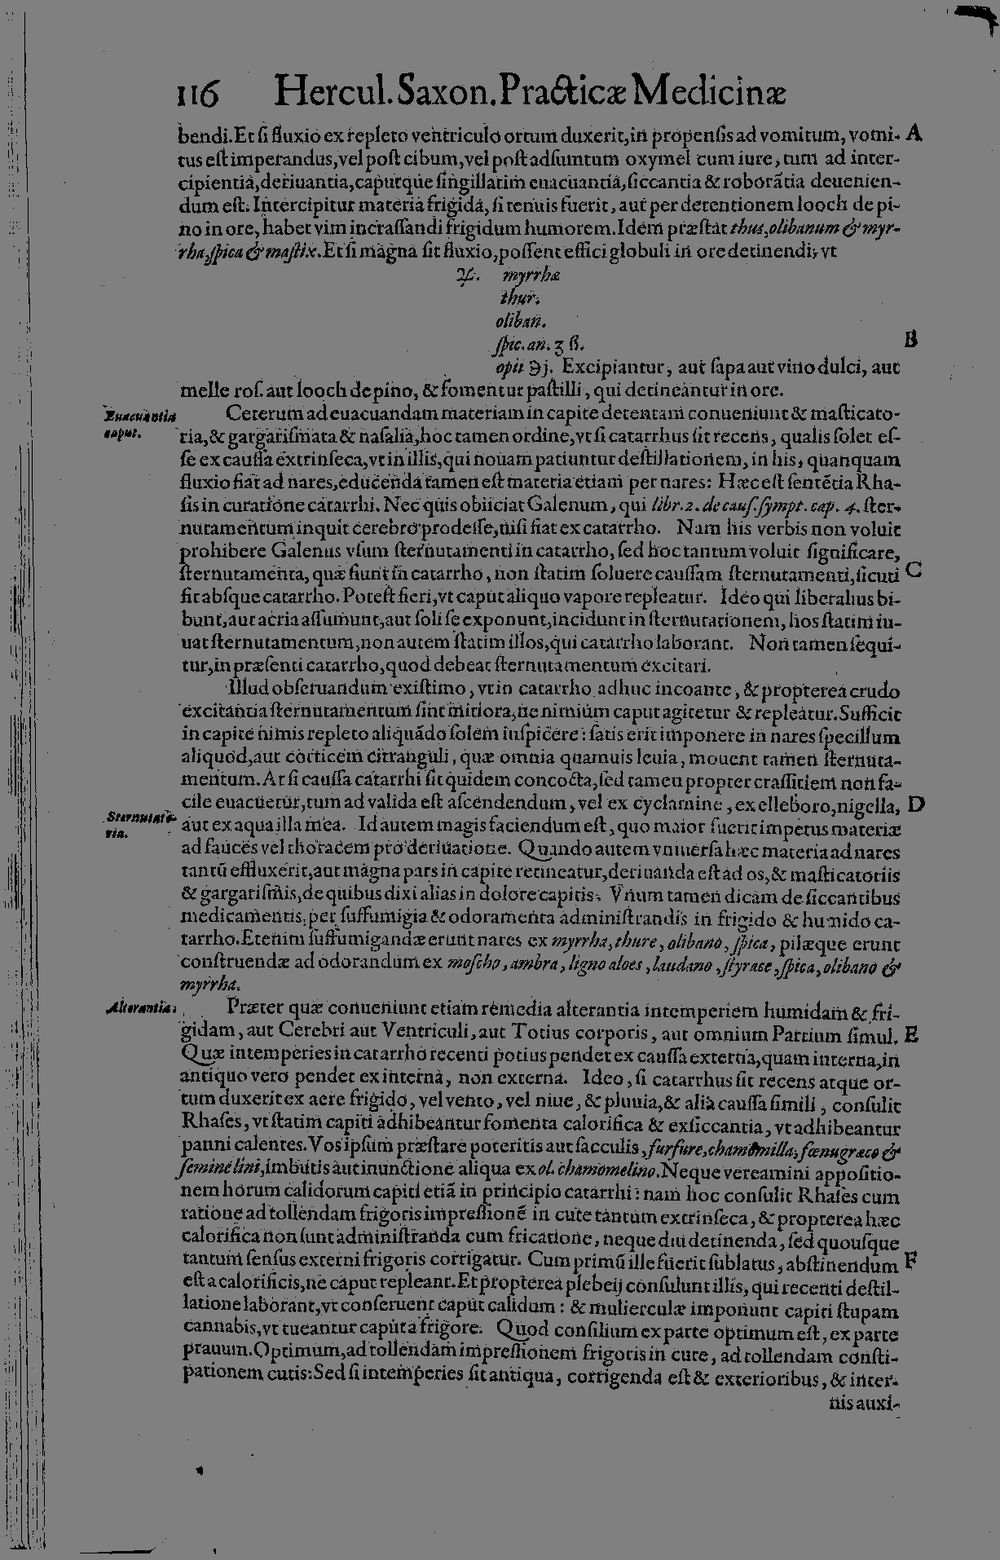 116 Hercul. Saxon. Practicæ Medicinæ
bendi. Et ſi fluxio ex repleto ventriculo ortum duxerit, in propenſis ad vomitum, vomi- A
tus eſt imperandus, vel poſt cibum, vel poſt adſumtum oxymel cum iure, tum ad inter-
cipientia, deriuantia, caputque ſingillatim euacuantia, ſiccantia & roborãtia deuenien-
dum eſt. Intercipitur materia frigida, ſi tenuis fuerit, aut per detentionem looch de pi-
no in ore, habet vim incraſſandi frigidum humorem. Idem præſtat thus, olibanum & myr-
rha, ſpica & maſtix. Et ſi magna ſit fluxio, poſſent effici globuli in ore detinendi, vt
♃. myrrhæ
thur.
oliban.
ſpic. an. ʒ ß. B
opii ℈j. Excipiantur, aut ſapa aut vino dulci, aut
melle roſ. aut looch de pino, & fomentur paſtilli, qui detineantur in ore.
Euacuantia caput.
Ceterum ad euacuandam materiam in capite detentam conueniunt & maſticato-
ria, & gargariſmata & naſalia, hoc tamen ordine, vt ſi catarrhus ſit recens, qualis ſolet eſ-
ſe ex cauſſa extrinſeca, vt in illis, qui nouam patiuntur deſtillationem, in his, quanquam
fluxio fiat ad nares, educenda tamen eſt materia etiam per nares: Hæc eſt ſentẽtia Rha-
ſis in curatione catarrhi. Nec quis obiiciat Galenum, qui libr. 2. de cauſ. ſympt. cap. 4. ſter-
nutamentum inquit cerebro prodeſſe, niſi fiat ex catarrho. Nam his verbis non voluit
prohibere Galenus vſum ſternutamenti in catarrho, ſed hoc tantum voluit ſignificare,
ſternutamenta, quæ fiunt in catarrho, non ſtatim ſoluere cauſſam ſternutamenti, ſicuti C
fit abſque catarrho. Poteſt fieri, vt caput aliquo vapore repleatur. Ideo qui liberalius bi-
bunt, aut acria aſſumunt, aut ſoli ſe exponunt, incidunt in ſternutationem, hos ſtatim iu-
uat ſternutamentum, non autem ſtatim illos, qui catarrho laborant. Non tamen ſequi-
tur, in præſenti catarrho, quod debeat ſternutamentum excitari.
Illud obſeruandum exiſtimo, vt in catarrho adhuc incoante, & propterea crudo
excitantia ſternutamentum ſint mitiora, ne nimium caput agitetur & repleatur. Sufficit
in capite nimis repleto aliquãdo ſolem inſpicere: ſatis erit imponere in nares ſpecillum
aliquod, aut corticem citranguli, quæ omnia quamuis leuia, mouent tamen ſternuta-
mentum. At ſi cauſſa catarrhi ſit quidem concocta, ſed tamen propter craſſitiem non fa-
cile euacuetur, tum ad valida eſt aſcendendum, vel ex cyclamine, ex elleboro, nigella, D
Sternutato-
ria.
aut ex aqua illa mea. Id autem magis faciendum eſt, quo maior fuerit impetus materiæ
ad fauces vel thoracem pro deriuatione. Quando autem vniuerſa hæc materia ad nares
tantũ effluxerit, aut magna pars in capite retineatur, deriuanda eſt ad os, & maſticatoriis
& gargariſmis, de quibus dixi alias in dolore capitis. Vnum tamen dicam de ſiccantibus
medicamentis, per ſuffumigia & odoramenta adminiſtrandis in frigido & humido ca-
tarrho. Etenim ſuffumigandæ erunt nares ex myrrha, thure, olibano, ſpica, pilæque erunt
conſtruendæ ad odorandum ex moſcho, ambra, ligno aloes, laudano, ſtyrace, ſpica, olibano &
myrrha.
Alterantia.
Præter quæ conueniunt etiam remedia alterantia intemperiem humidam & fri-
gidam, aut Cerebri aut Ventriculi, aut Totius corporis, aut omnium Partium ſimul. E
Quæ intemperies in catarrho recenti potius pendet ex cauſſa externa, quam interna, in
antiquo vero pendet ex interna, non externa. Ideo, ſi catarrhus ſit recens atque or-
tum duxerit ex aere frigido, vel vento, vel niue, & pluuia, & alia cauſſa ſimili, conſulit
Rhaſes, vt ſtatim capiti adhibeantur fomenta calorifica & exſiccantia, vt adhibeantur
panni calentes. Vos ipſum præſtare poteritis aut ſacculis, furfure, chamomilla, fœnugræco &
ſemine lini, imbutis aut inunctione aliqua ex ol. chamomelino. Neque vereamini appoſitio-
nem horum calidorum capiti etiã in principio catarrhi: nam hoc conſulit Rhaſes cum
ratione ad tollendam frigoris impreſſionẽ in cute tantum extrinſeca, & propterea hæc
calorifica non ſunt adminiſtranda cum fricatione, neque diu detinenda, ſed quouſque
tantum ſenſus externi frigoris corrigatur. Cum primũ ille fuerit ſublatus, abſtinendum F
eſt a calorificis, ne caput repleant. Et propterea plebeij conſulunt illis, qui recenti deſtil-
latione laborant, vt conſeruent caput calidum: & mulierculæ imponunt capiti ſtupam
cannabis, vt tueantur caput a frigore. Quod conſilium ex parte optimum eſt, ex parte
prauum. Optimum, ad tollendam impreſſionem frigoris in cute, ad tollendam conſti-
pationem cutis: Sed ſi intemperies ſit antiqua, corrigenda eſt & exterioribus, & inter-
nis auxi-